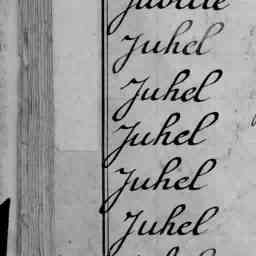 Juhel
Juhel
Juhel
Juhel
Juhel